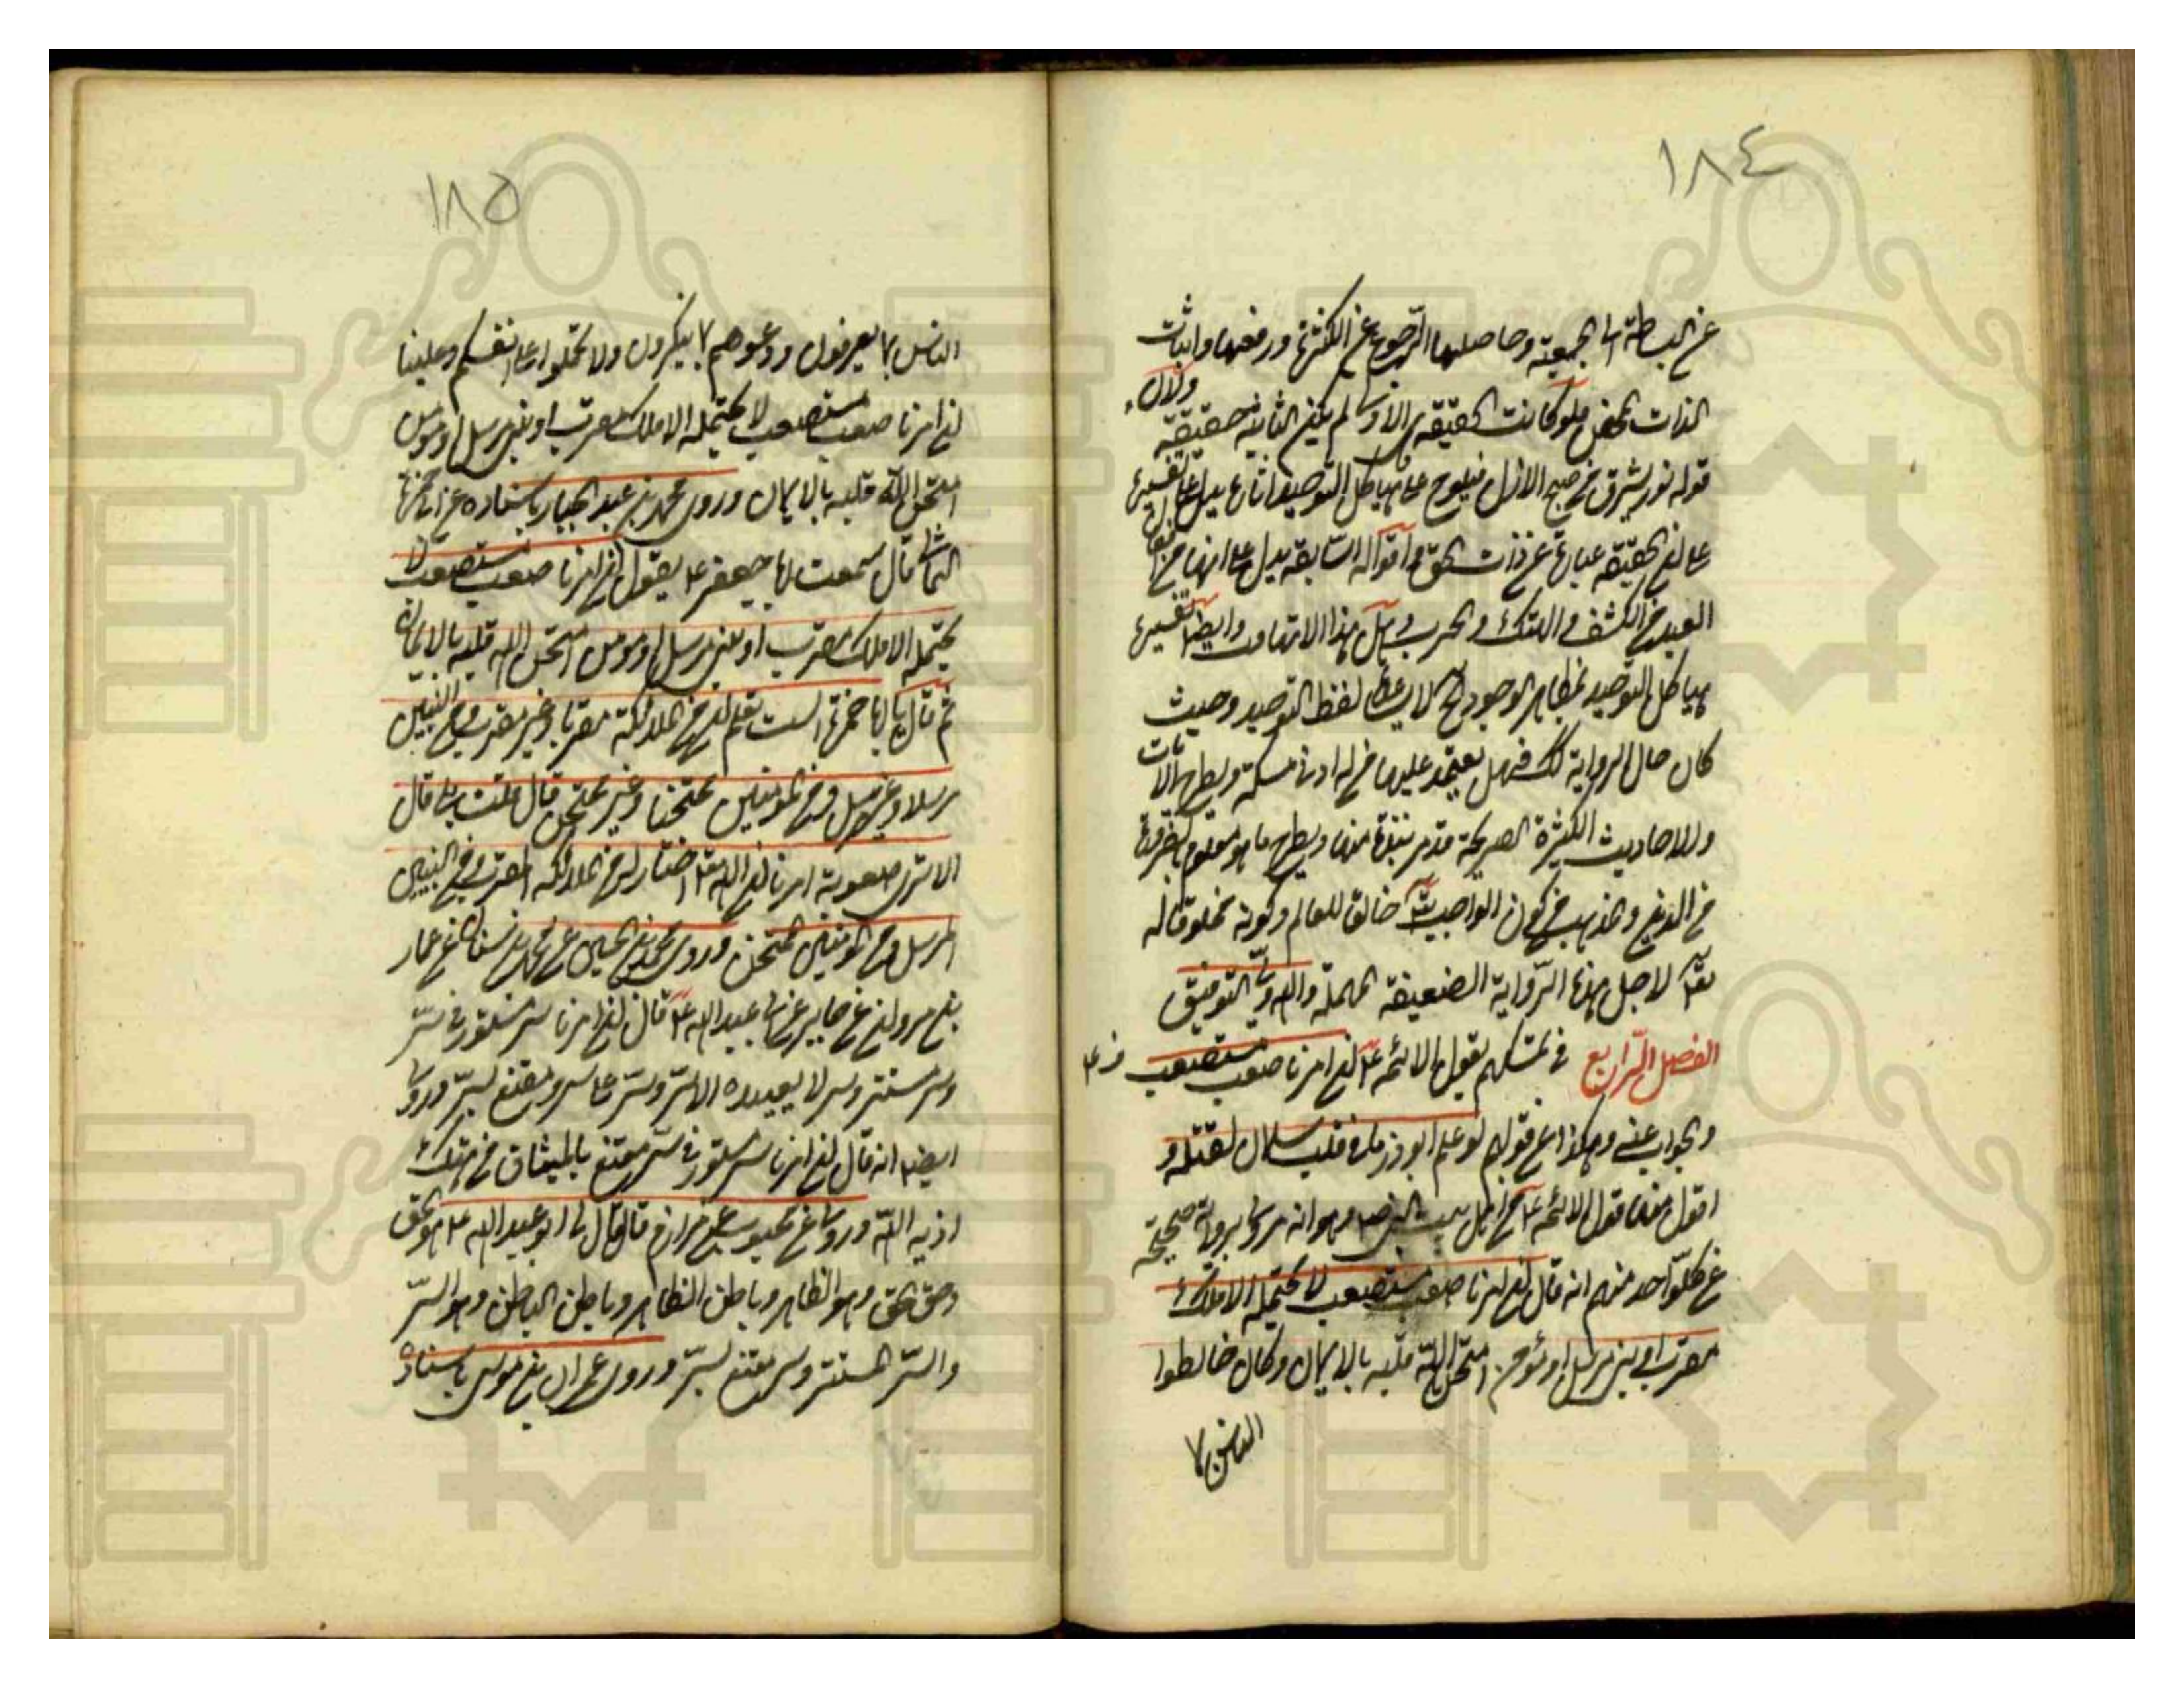 ١٨٤
عن البساطة الى الجمعية وحاصلها الرجوع عن الكثرة ورفعها واثبات
الذات المحض فلو كانت الحقيقة هي الاولى لم يكن الثانية حقيقة ولان
قوله نور يشرق من صبح الازل فيلوح على هياكل التوحيد اثاره يدل على تفسيره
على ان الحقيقة عبارة عن ذات الحق واقواله السابقة يدل على انها من
العبد من الكشف والهتك والجرب وهل هذا الا تهافت وايضا تفسيره
هياكل التوحيد بمظاهر الوجود مما لا يساعده لفظ التوحيد وحيث
كان حال الرواية كك فهل يعتمد عليها من له ادنى مسكة ويطرح الايات
والاحاديث الكثيرة الصريحة قد مر نبذة منها ويطرح ما هو معلوم بالضرورة
من الدين والمذهب من كون الواجب تعالى خالقا للعالم وكونه مخلوقا له
تعالى لاجل هذه الرواية الضعيفة المهملة والله ولي التوفيق
الفصل الرابع في تمسكهم بقول الائمة ع ان امرنا صعب مستصعب
والجواب عنه وهكذا عن قولهم لو علم ابوذر ما في قلب سلمان لقتله و
اقول منها قول الائمة ع من اهل بيت النبي ص وهو انه مروي برواية صحيحة
عن كل واحد منهم انه قال ان امرنا صعب مستصعب لا يحتمله الا ملك
مقرب او نبي مرسل او مؤمن امتحن الله قلبه بالايمان وكان خالطوا
الناس بما
١٨٥
الناس بما يعرفون ودعوهم مما ينكرون ولا تحملوا على انفسكم وعلينا
ان امرنا صعب مستصعب لا يحتمله الا ملك مقرب او نبي مرسل او مؤمن
امتحن الله قلبه بالايمان وروى محمد بن عبد الجبار باسناده عن ابي حمزة
الثمالي قال سمعت ابا جعفر ع يقول ان امرنا صعب مستصعب لا
يحتمله الا ملك مقرب او نبي مرسل او مؤمن امتحن الله قلبه بالايمان
ثم قال يا ابا حمزة الست تعلم ان من الملائكة مقربا وغير مقرب ومن النبيين
مرسلا وغير مرسل ومن المؤمنين ممتحنا وغير ممتحن قال قلت بلى قال
الا ترى صعوبة امرنا ان الله تعالى اختار له من الملائكة المقرب ومن النبيين
المرسل ومن المؤمنين الممتحن وروى محمد بن الحسين عن محمد بن سنان عن عمار
بن مروان عن جابر عن ابي عبد الله ع قال ان امرنا سر مستور في سر
وسر مستتر وسر لا يفيده الا سر وسر على سر وسر مقنع بسر وروي
ايضا انه قال ان امرنا سر مستور في سر مقنع بالميثاق من هتكه
اذله الله وروي عن مرازم قال قال لي ابو عبد الله ع هو الحق
وحق الحق وهو الظاهر وباطن الظاهر وباطن الباطن وهو السر
والسر المستتر وسر مقنع بسر وروى عمران بن موسى باسناده